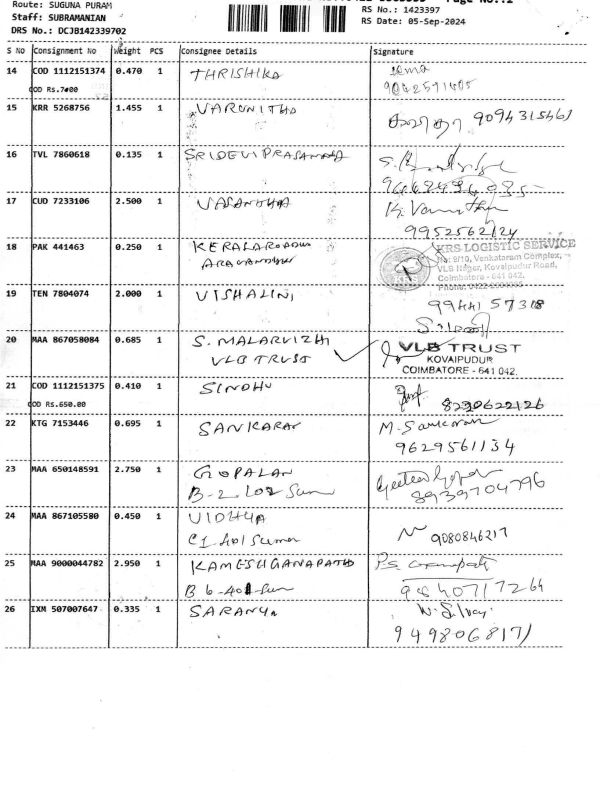 Route: SUGUNA PURAM
Page No.:2
RS No.: 1423397
Staff: SUBRAMANIAN
RS Date: 05-Sep-2024
DRS No.: DCJB142339702
S NO Consignment No Weight PCS Consignee Details Signature
14 COD 1112151374 0.470 1 THRISHIKA
COD Rs.7400
15 KRR 5268756 1.455 1 VARUNITHA
16 TVL 7860618 0.135 1 SRIDEVI PRASANNA
17 CUD 7233106 2.500 1 VASANTHA
9952562124
18 PAK 441463 0.250 1
KRS LOGISTIC SERVICE
No: 9/10, Venkatoram Complex,
VLB Nagar, Kovaipudur Road,
Coimbatore - 641 042.
19 TEN 7804074 2.000 1 VISHALINI
9944157318
20 MAA 867058084 0.685 1 S. MALARVIZHI
VLB TRUST
VLB TRUST
KOVAIPUDUR
COIMBATORE - 641 042.
21 COD 1112151375 0.410 1 SINDHU
COD Rs.650.00 8220622126
22 KTG 7153446 0.695 1 SANKARAN M. Sankaran
9629561134
23 MAA 650148591 2.750 1 GOPALAN
B-2 102 Sun 8939704796
24 MAA 867105580 0.450 1 VIDHYA
C1 401 Sumer 9080846217
25 MAA 9000044782 2.950 1 KAMESHGANAPATHI
B 6-401 Sun 9840717264
26 IXM 507007647 0.335 1 SARANYA
9498068171